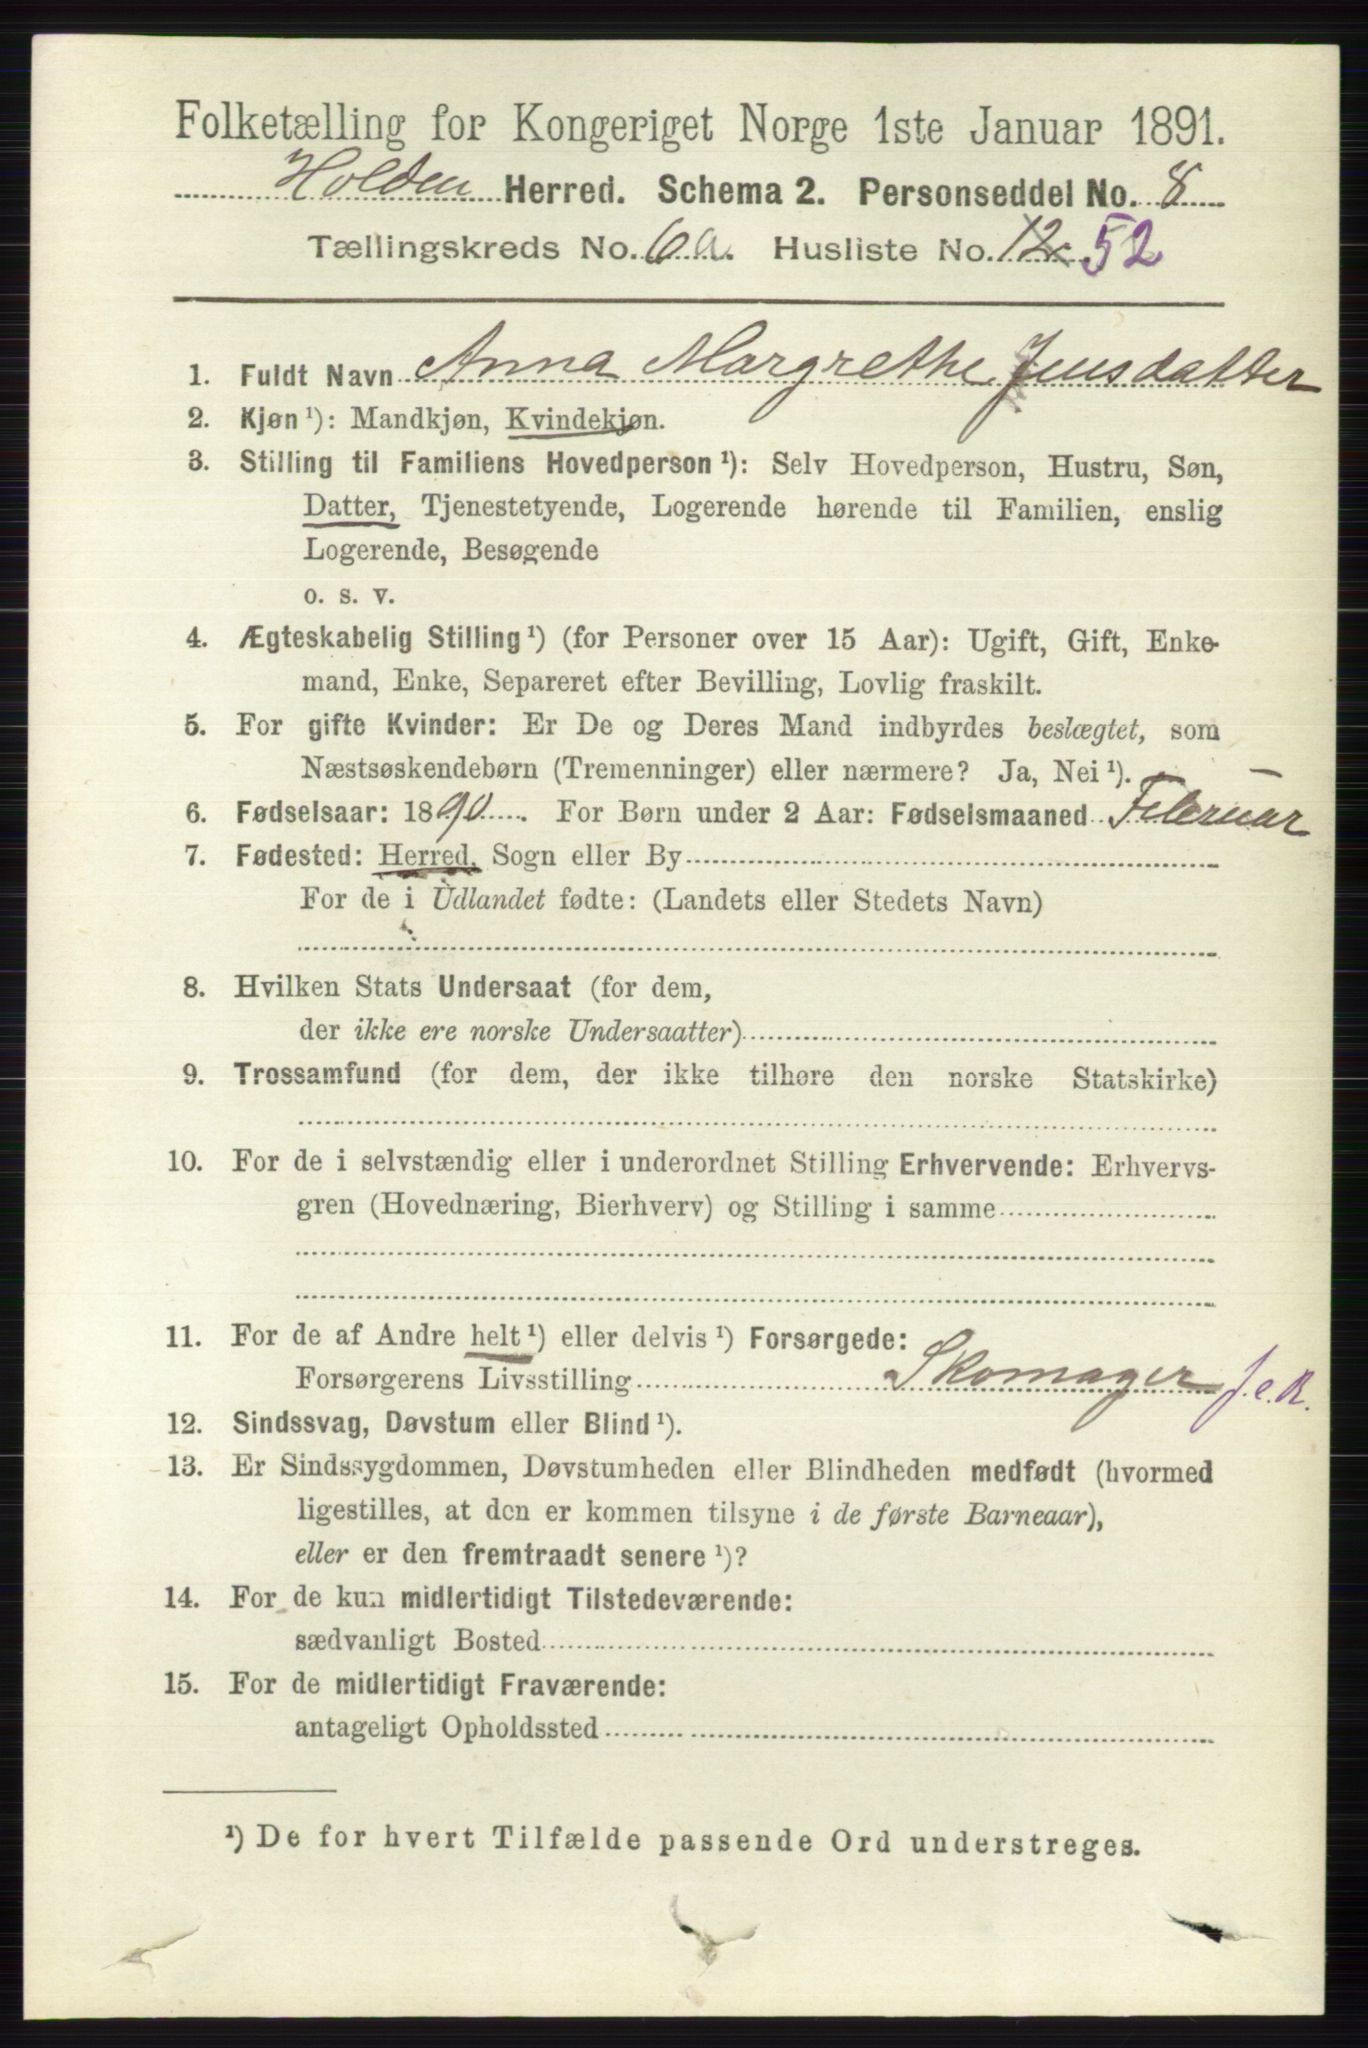 Folketælling for Kongeriget Norge 1ste Januar 1891.
Holden Herred. Schema 2. Personseddel No. 8
Tællingskreds No. 6a. Husliste No. 12 52
1. Fuldt Navn Anna Margrethe Jensdatter
2. Kjøn ¹): Mandkjøn, Kvindekjøn.
3. Stilling til Familiens Hovedperson ¹): Selv Hovedperson, Hustru, Søn,
Datter, Tjenestetyende, Logerende hørende til Familien, enslig
Logerende, Besøgende
o. s. v.
4. Ægteskabelig Stilling ¹) (for Personer over 15 Aar): Ugift, Gift, Enke-
mand, Enke, Separeret efter Bevilling, Lovlig fraskilt.
5. For gifte Kvinder: Er De og Deres Mand indbyrdes beslægtet, som
Næstsøskendebørn (Tremenninger) eller nærmere? Ja, Nei ¹).
6. Fødselsaar: 1890. For Børn under 2 Aar: Fødselsmaaned Februar
7. Fødested: Herred, Sogn eller By
For de i Udlandet fødte: (Landets eller Stedets Navn)
8. Hvilken Stats Undersaat (for dem,
der ikke ere norske Undersaatter)
9. Trossamfund (for dem, der ikke tilhøre den norske Statskirke)
10. For de i selvstændig eller i underordnet Stilling Erhvervende: Erhvervs-
gren (Hovednæring, Bierhverv) og Stilling i samme
11. For de af Andre helt ¹) eller delvis ¹) Forsørgede:
Forsørgerens Livsstilling Skomager f.e.R.
12. Sindssvag, Døvstum eller Blind ¹).
13. Er Sindssygdommen, Døvstumheden eller Blindheden medfødt (hvormed
ligestilles, at den er kommen tilsyne i de første Barneaar),
eller er den fremtraadt senere ¹)?
14. For de kun midlertidigt Tilstedeværende:
sædvanligt Bosted
15. For de midlertidigt Fraværende:
antageligt Opholdssted
¹) De for hvert Tilfælde passende Ord understreges.